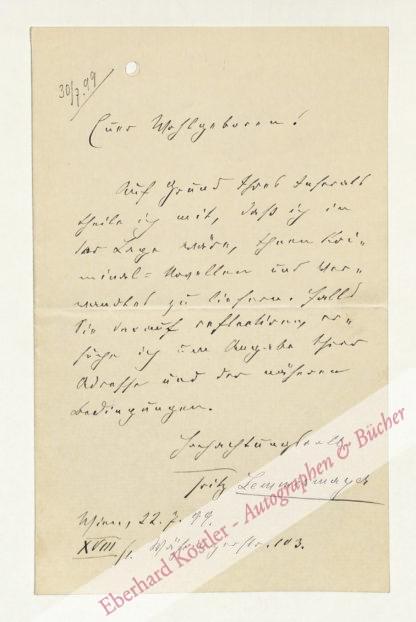 30/7. 99
Euer Wohlgeboren!
Auf Grund Ihres Inserats
theile ich mit, daß ich in
der Lage wäre, Ihnen Kri-
minal-Novellen und Ver-
wandtes zu liefern. Falls
Sie darauf reflectiren, er-
suche ich um Angabe Ihrer
Adresse und der näheren
Bedingungen.
Hochachtungsvoll
Fritz Lemmermayer
Wien, 22. 7. 99.
XVIII/1. Währingerstr. 103.
Eberhard Köstler - Autographen & Bücher